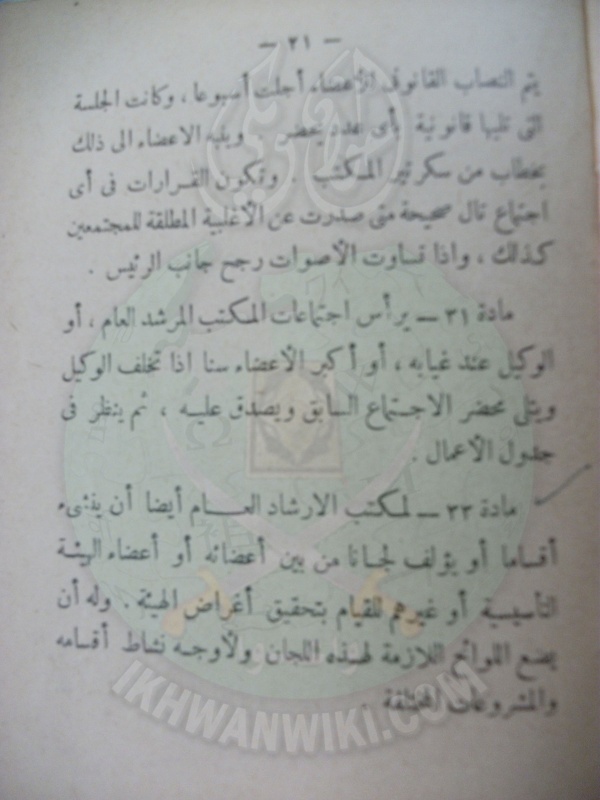 — ٢١ —
يتم النصاب القانونى الأعضاء أجلت أسبوعا ، وكانت الجلسة
التى تليها قانونية بأى عدد يحضر وينبه الاعضاء الى ذلك
بخطاب من سكرتير المكتب . وتكون القرارات فى أى
اجتماع تال صحيحة متى صدرت عن الأغلبية المطلقة للمجتمعين
كذلك ، واذا تساوت الأصوات رجح جانب الرئيس .
مادة ٣١ — يرأس اجتماعات المكتب المرشد العام ، أو
الوكيل عند غيابه ، أو أكبر الأعضاء سنا اذا تخلف الوكيل
ويتلى محضر الاجتماع السابق ويصدق عليه ، ثم ينظر فى
جدول الأعمال .
مادة ٣٣ — لمكتب الارشاد العام أيضا أن ينشىء
أقساما أو يؤلف لجانا من بين أعضائه أو أعضاء الهيئة
التأسيسية أو غيرهم للقيام بتحقيق أغراض الهيئة . وله أن
يضع اللوائح اللازمة لهذه اللجان ولأوجه نشاط أقسامه
والمشروعات المختلفة .
IKHWANWIKI.COM